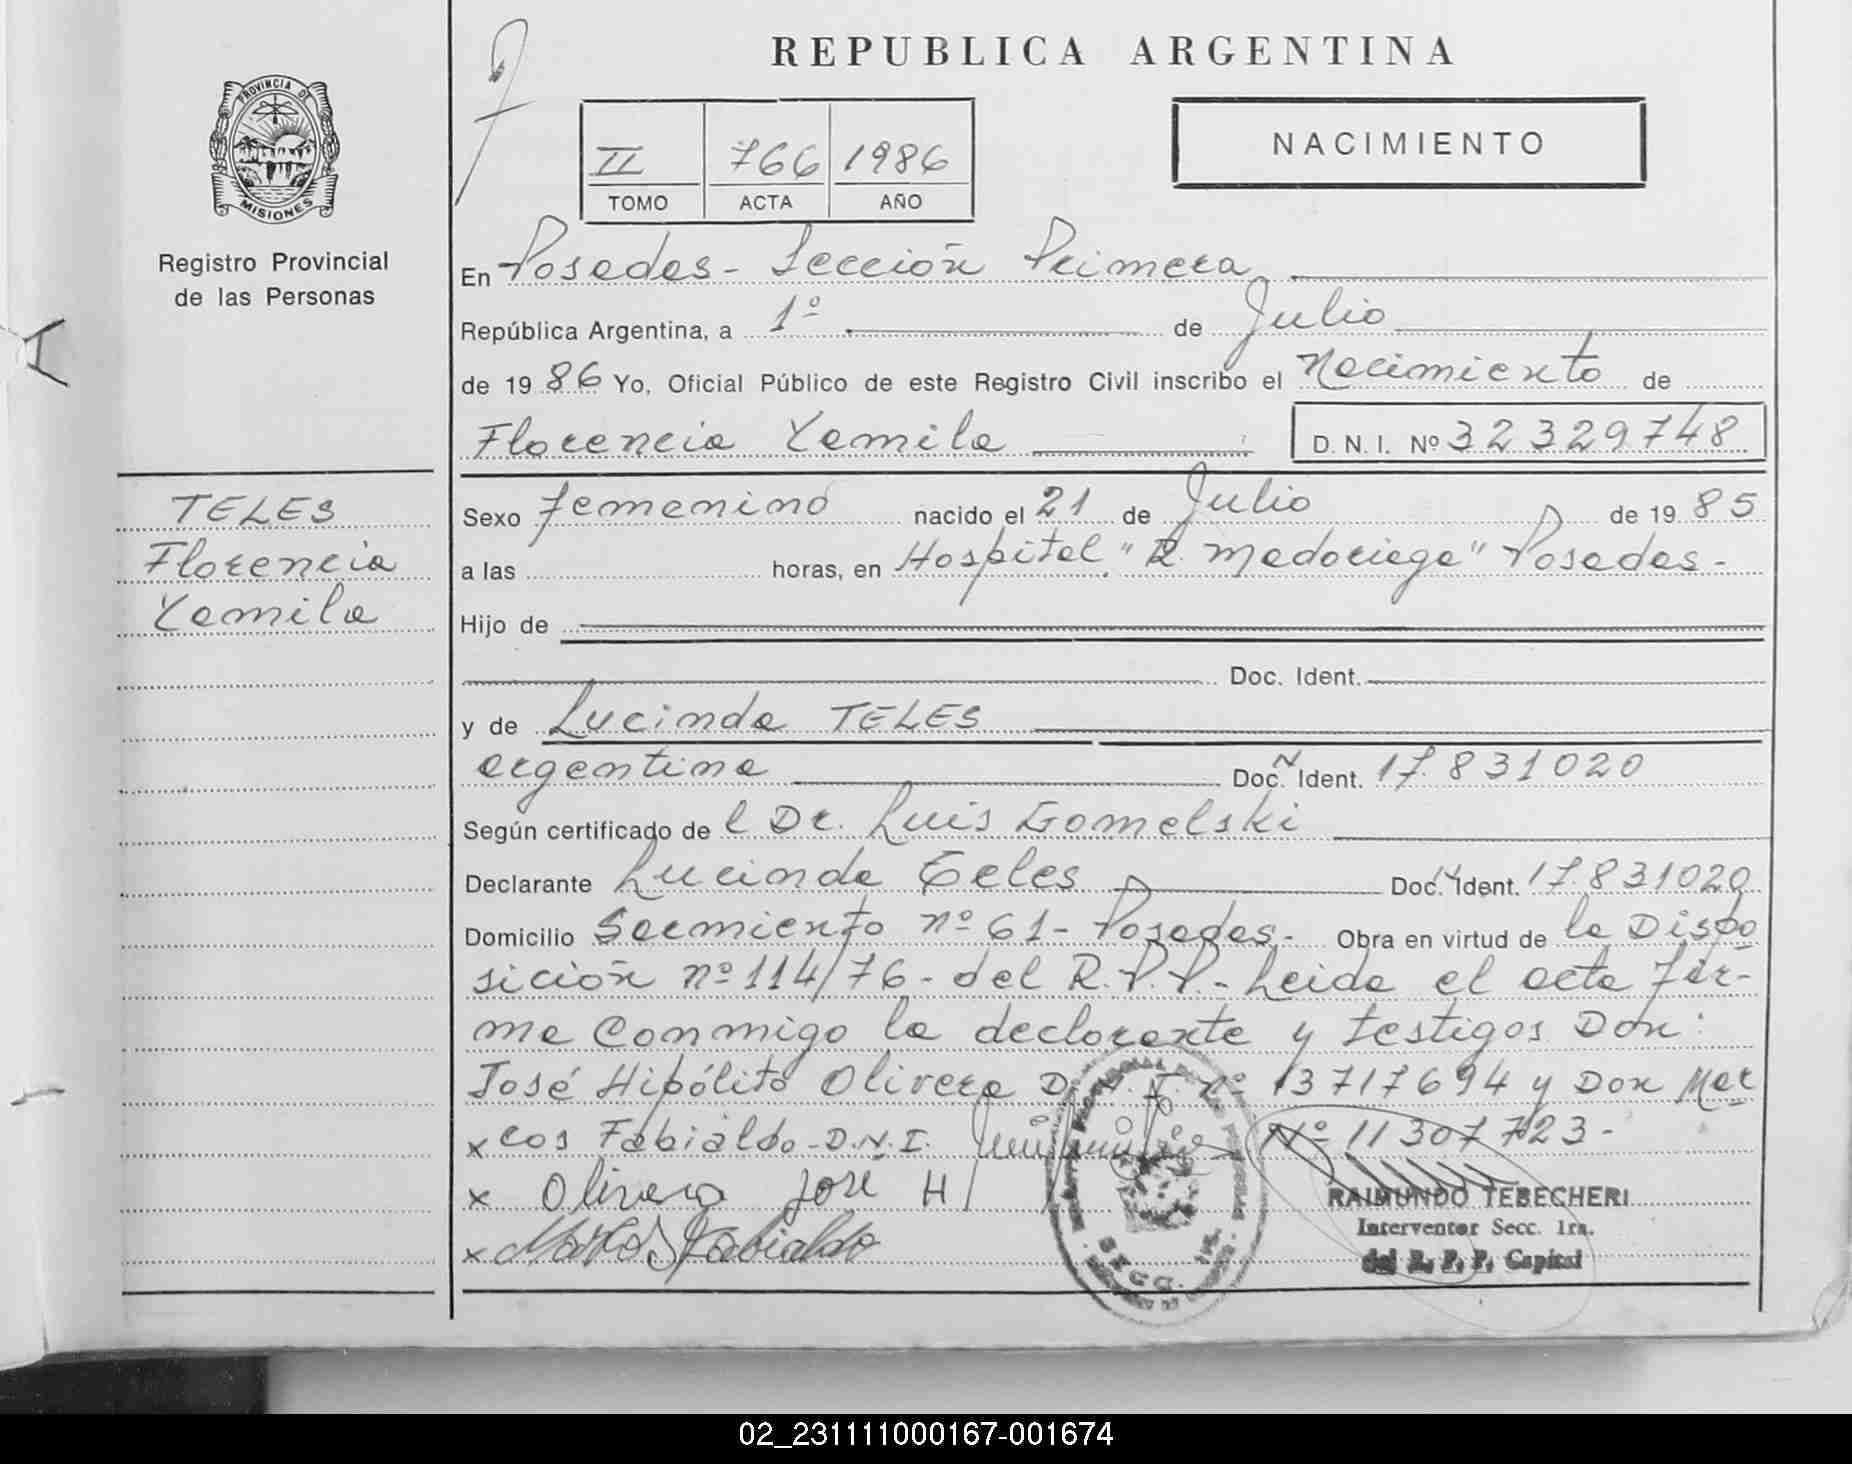 REPUBLICA ARGENTINA
PROVINCIA DE
MISIONES
Registro Provincial
de las Personas
NACIMIENTO
II 766 1986
TOMO ACTA AÑO
En Posadas - Sección Primera
República Argentina, a 1º de Julio
de 1986 Yo, Oficial Público de este Registro Civil inscribo el Nacimiento de
Florencia Yamila D. N. I. Nº 32329748
TELES
Florencia
Yamila
Sexo femenino nacido el 21 de Julio de 1985
a las horas, en Hospital "R. Madariaga" Posadas -
Hijo de
Doc. Ident.
y de Lucinda TELES
argentina Doc. Ident. 17.831020
Según certificado del Dr. Luis Gomelski
Declarante Lucinda Teles Doc. Ident. 17.831020
Domicilio Sarmiento nº 61 - Posadas - Obra en virtud de la Dispo
sición nº 114/76 - del R.P.P. - Leida el acta fir-
ma conmigo la declarante y testigos Don:
José Hipólito Olivera D.N.I. Nº 13717694 y Don Mar
x cos Fabialdo - D.N.I. Nº 11307723 -
x Olivera José H
x Marcos Fabialdo
SECC. 1ra.
RAIMUNDO TEBECHERI
Interventor Secc. 1ra.
del R. P. P. Capital
02_231111000167-001674